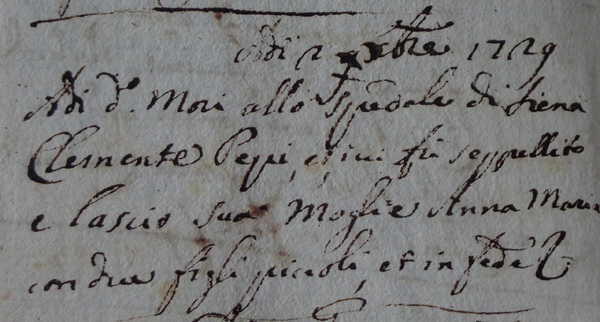 Adi 2 xbre 1729
Adi d.º Mori allo Spedale di Siena
Clemente Pepi, et ivi fù seppellito
e lasciò sua Moglie Anna Maria
con due figli piccoli, et in fede